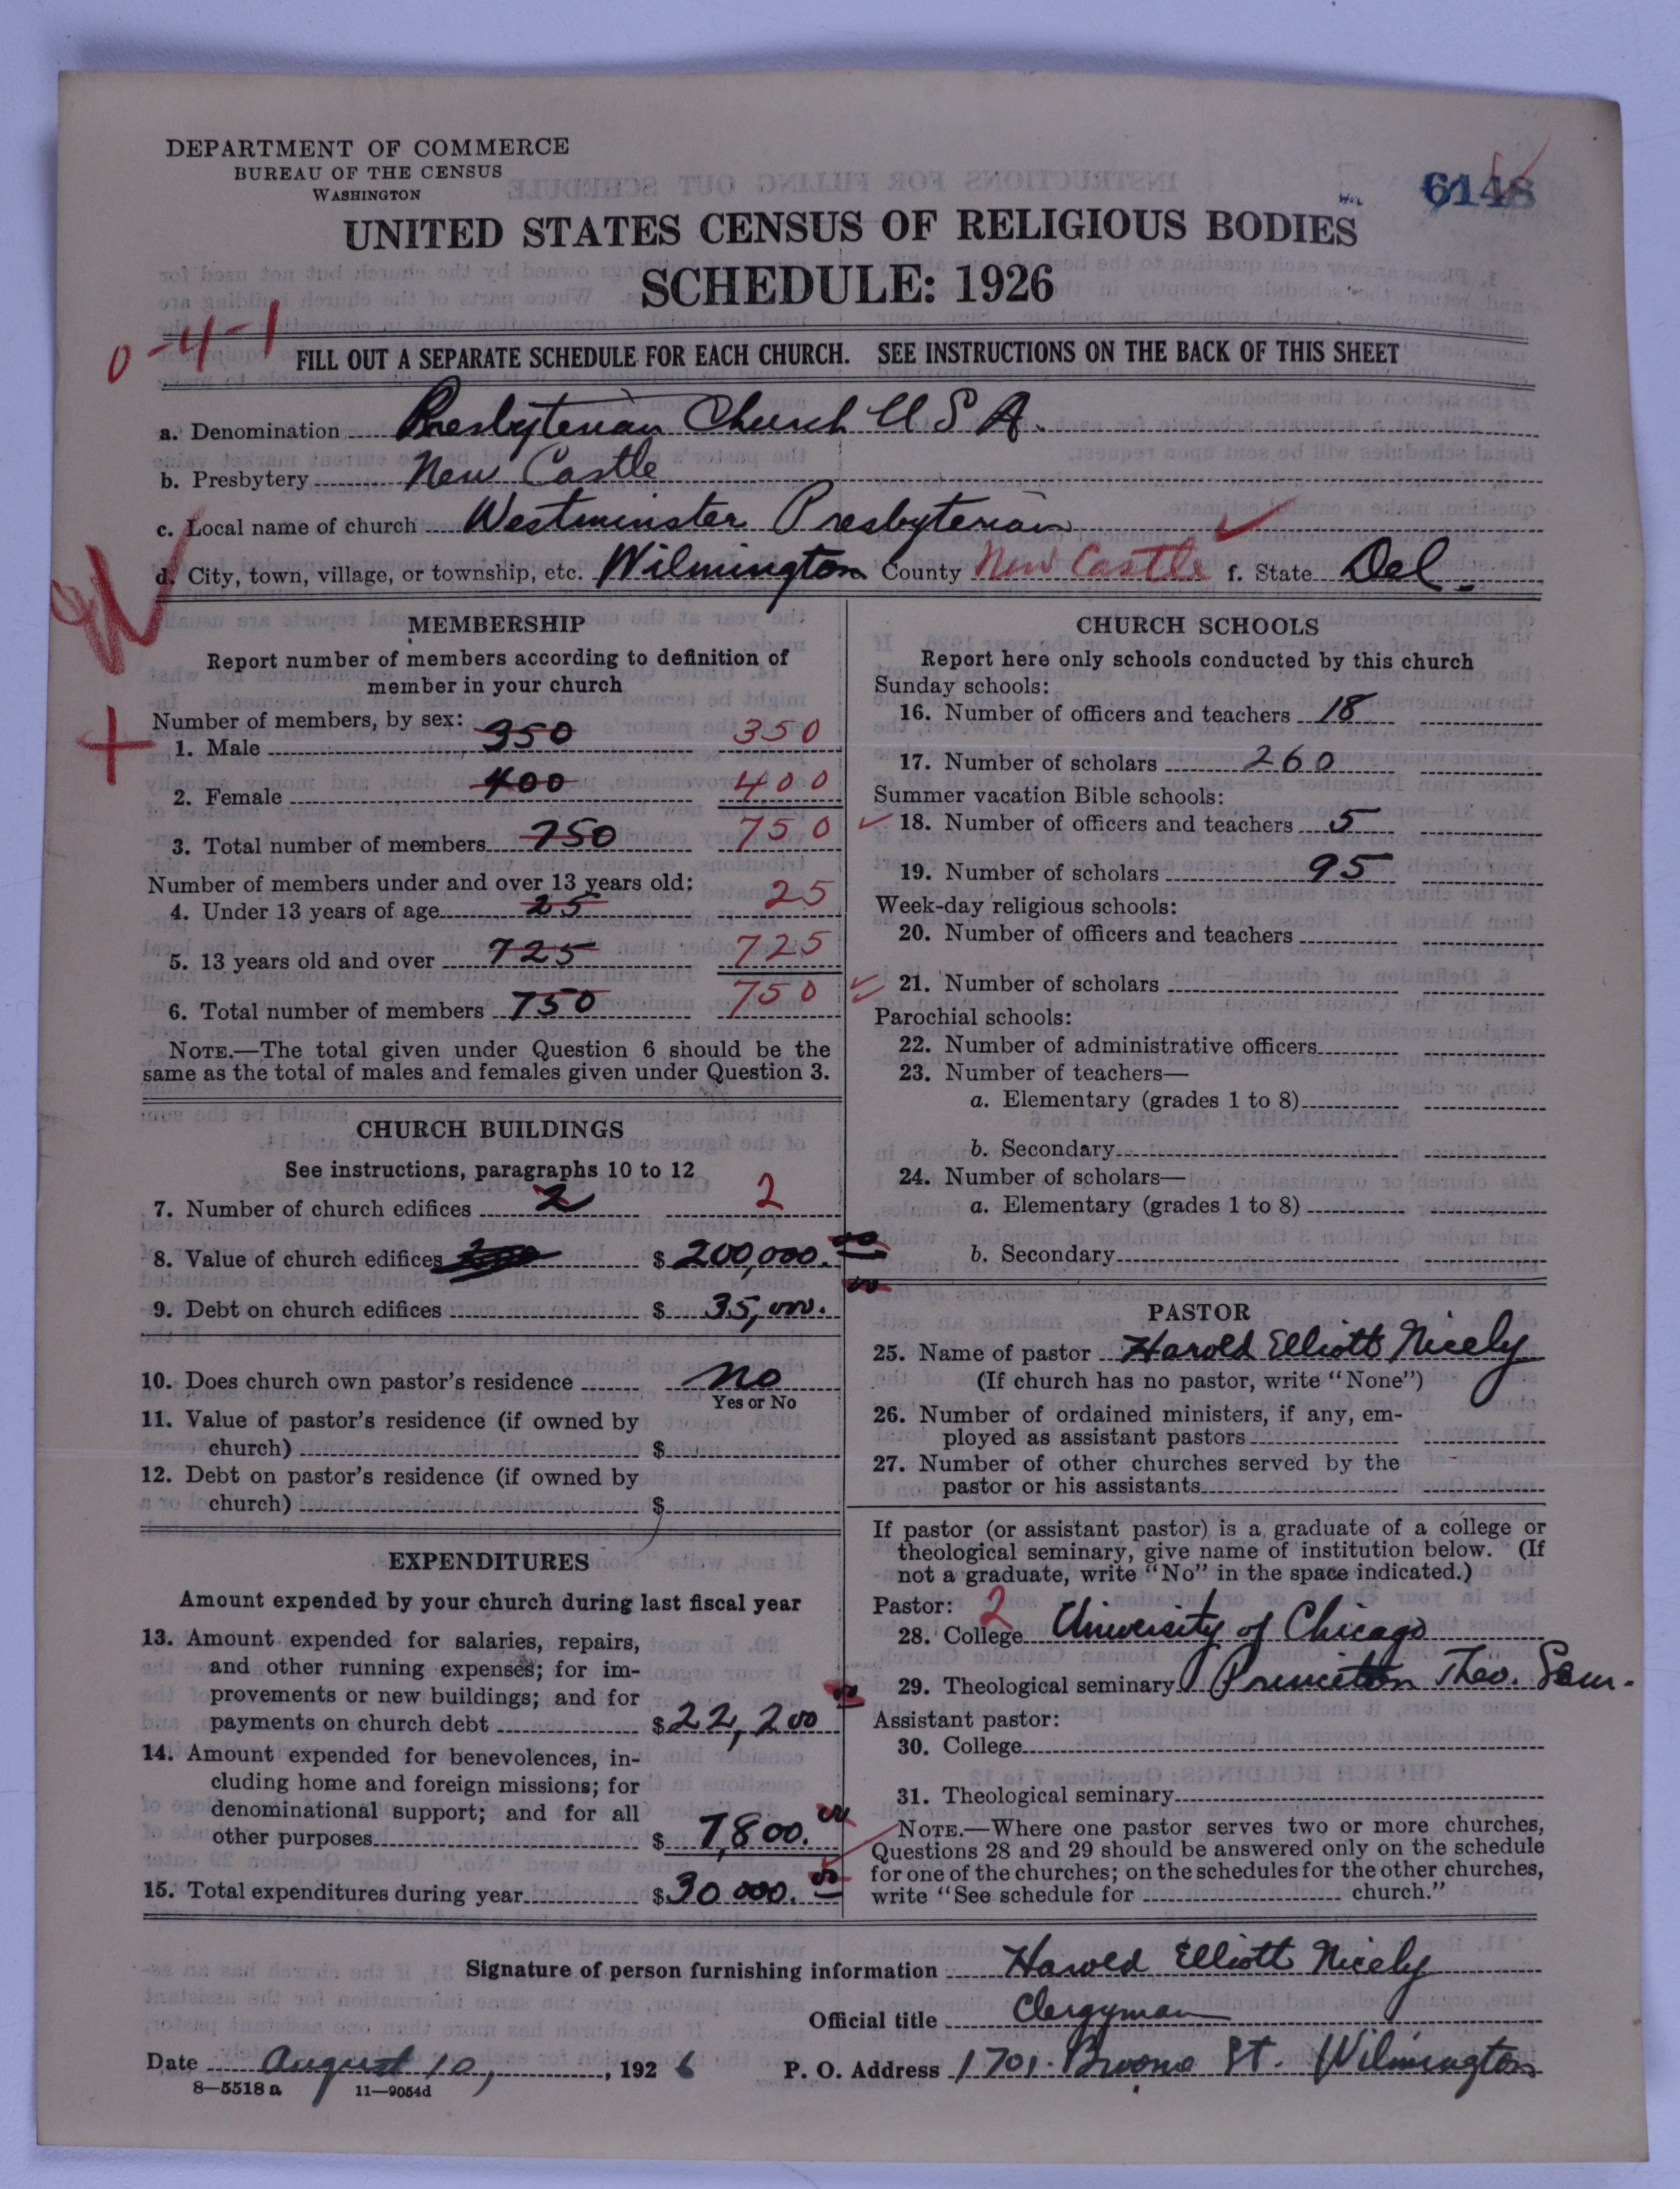 DEPARTMENT OF COMMERCE
BUREAU OF THE CENSUS
WASHINGTON
6148
UNITED STATES CENSUS OF RELIGIOUS BODIES
SCHEDULE: 1926
0-4-1
FILL OUT A SEPARATE SCHEDULE FOR EACH CHURCH. SEE INSTRUCTIONS ON THE BACK OF THIS SHEET
a. Denomination Presbyterian Church U S A.
b. Presbytery New Castle
c. Local name of church Westminster Presbyterian
d. City, town, village, or township, etc. Wilmington County New Castle f. State Del.
MEMBERSHIP
Report number of members according to definition of
member in your church
Number of members, by sex:
1. Male 350 350
2. Female 400 400
3. Total number of members 750 750
Number of members under and over 13 years old:
4. Under 13 years of age 25 25
5. 13 years old and over 725 725
6. Total number of members 750 750
NOTE.—The total given under Question 6 should be the
same as the total of males and females given under Question 3.
CHURCH BUILDINGS
See instructions, paragraphs 10 to 12
7. Number of church edifices 2 2
8. Value of church edifices $ 200,000.00
9. Debt on church edifices $ 35,000.00
10. Does church own pastor's residence No
Yes or No
11. Value of pastor's residence (if owned by
church) $
12. Debt on pastor's residence (if owned by
church) $
EXPENDITURES
Amount expended by your church during last fiscal year
13. Amount expended for salaries, repairs,
and other running expenses; for im-
provements or new buildings; and for
payments on church debt $ 22,200
14. Amount expended for benevolences, in-
cluding home and foreign missions; for
denominational support; and for all
other purposes $ 7,800.00
15. Total expenditures during year $ 30 000.00
CHURCH SCHOOLS
Report here only schools conducted by this church
Sunday schools:
16. Number of officers and teachers 18
17. Number of scholars 260
Summer vacation Bible schools:
18. Number of officers and teachers 5
19. Number of scholars 95
Week-day religious schools:
20. Number of officers and teachers
21. Number of scholars
Parochial schools:
22. Number of administrative officers
23. Number of teachers—
a. Elementary (grades 1 to 8)
b. Secondary
24. Number of scholars—
a. Elementary (grades 1 to 8)
b. Secondary
PASTOR
25. Name of pastor Harold Elliott Nicely
(If church has no pastor, write "None")
26. Number of ordained ministers, if any, em-
ployed as assistant pastors
27. Number of other churches served by the
pastor or his assistants
If pastor (or assistant pastor) is a graduate of a college or
theological seminary, give name of institution below. (If
not a graduate, write "No" in the space indicated.)
Pastor: 2
28. College University of Chicago
29. Theological seminary Princeton Theo. Sem.
Assistant pastor:
30. College
31. Theological seminary
NOTE.—Where one pastor serves two or more churches,
Questions 28 and 29 should be answered only on the schedule
for one of the churches; on the schedules for the other churches,
write "See schedule for church."
Signature of person furnishing information Harold Elliott Nicely
Official title Clergyman
Date August 10, 1926 P. O. Address 1701 Broome St. Wilmington
8—5518 a 11—9054d